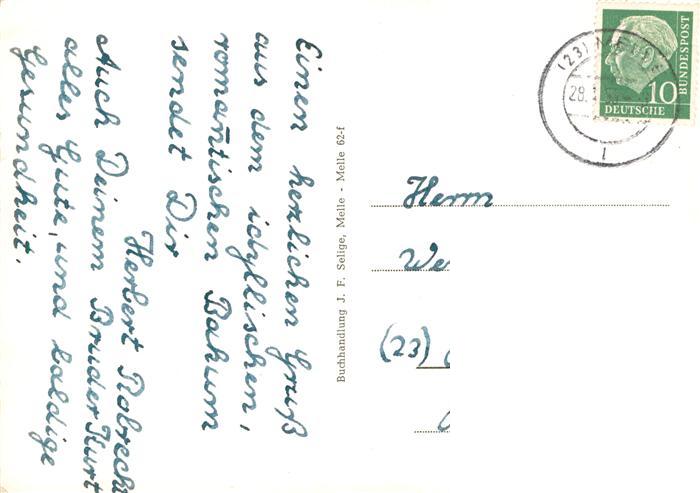 Einen herzlichen Gruß
aus dem idyllischen,
romantischen Bakum
sendet Dir
Herbert Robrecht
Auch Deinem Bruder Kurt
alles Gute, und baldige
Gesundheit.
Buchhandlung J. F. Selige, Melle - Melle 62-f
DEUTSCHE
BUNDESPOST
10
(23)
28.
1
Herrn
We
(23)